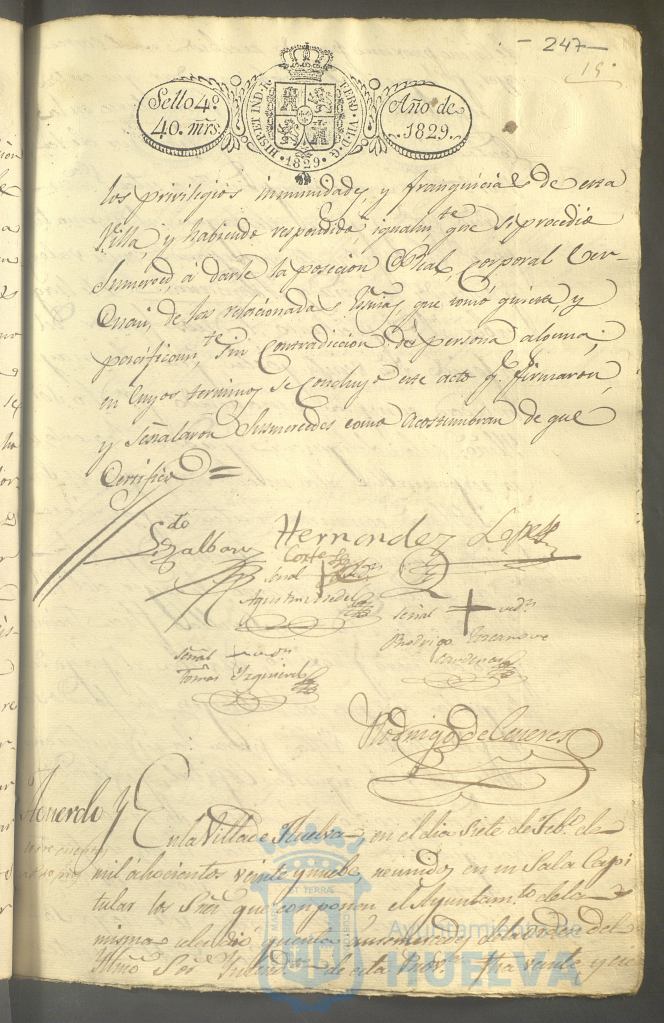 - 247 -
15
Sello 4º
40. mrs.
HISP. ET IND. R.
FERD. VII. D. G.
· 1829 ·
Año de
1829.
los privilegios inmunidades, y franquicias de esta
Villa, y habiendo respondido, igualmte que si procedió
Sumerced, á darle la posecion Real, Corporal vel
Quasi, de las relacionadas que tomó quieta, y
pacificamte, sin Contradiccion de persona alguna;
en cuyos terminos se concluyó este acto q.e firmaron,
y Señalaron Susmercedes como acostumbran de que
Certifico =
Hernandez Lopez
Señal +
Agustin
Señal +
Rodrigo
Señal +
Tomas Izquierdo
Rodrigo de
Acuerdo y
En la Villa de Huelva, en el dia Siete de Feb.o de
mil ochocientos veinte y nuebe, reunidos en su Sala Capi
tular los Sres que componen el Ayuntam.to de la
misma se les dió quenta
Sor de esta veinte y
Ayuntamiento de
HUELVA